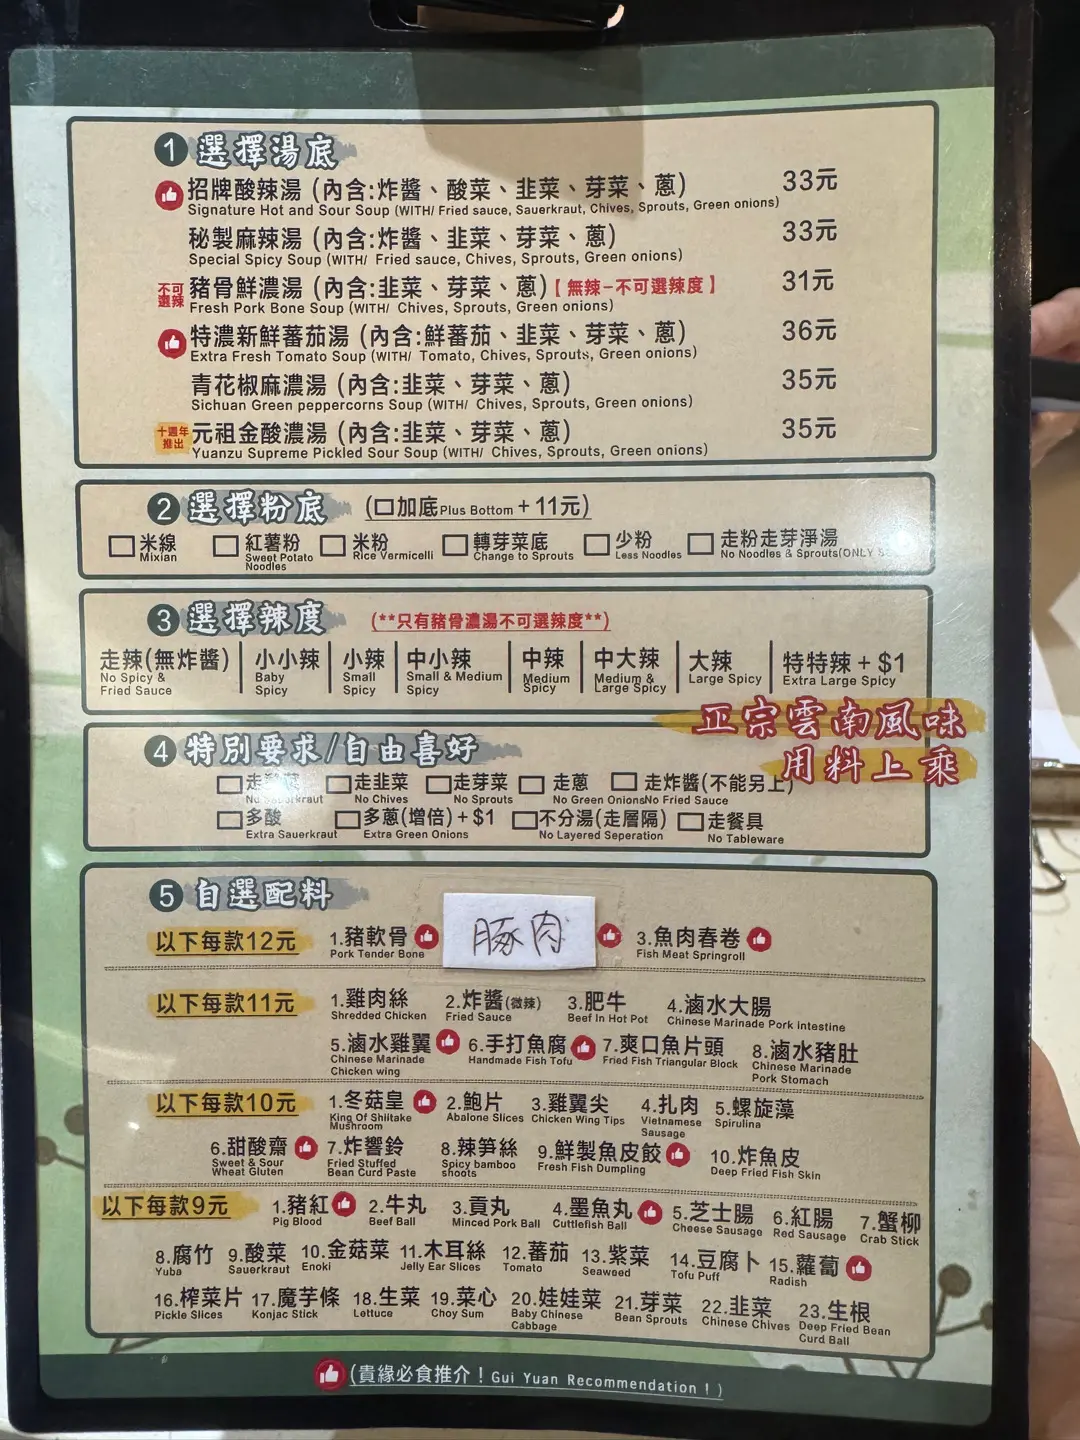 1 選擇湯底
招牌酸辣湯 (內含:炸醬、酸菜、韭菜、芽菜、蔥) 33元
Signature Hot and Sour Soup (WITH/ Fried sauce, Sauerkraut, Chives, Sprouts, Green onions)
秘製麻辣湯 (內含:炸醬、韭菜、芽菜、蔥) 33元
Special Spicy Soup (WITH/ Fried sauce, Chives, Sprouts, Green onions)
不可選辣 豬骨鮮濃湯 (內含:韭菜、芽菜、蔥)【無辣-不可選辣度】 31元
Fresh Pork Bone Soup (WITH/ Chives, Sprouts, Green onions)
特濃新鮮蕃茄湯 (內含:鮮蕃茄、韭菜、芽菜、蔥) 36元
Extra Fresh Tomato Soup (WITH/ Tomato, Chives, Sprouts, Green onions)
青花椒麻濃湯 (內含:韭菜、芽菜、蔥) 35元
Sichuan Green peppercorns Soup (WITH/ Chives, Sprouts, Green onions)
十週年推出 元祖金酸濃湯 (內含:韭菜、芽菜、蔥) 35元
Yuanzu Supreme Pickled Sour Soup (WITH/ Chives, Sprouts, Green onions)
2 選擇粉底 (□加底 Plus Bottom + 11元)
□米線 □紅薯粉 □米粉 □轉芽菜底 □少粉 □走粉走芽淨湯
Mixian Sweet Potato Noodles Rice Vermicelli Change to Sprouts Less Noodles No Noodles & Sprouts(ONLY
3 選擇辣度 (**只有豬骨濃湯不可選辣度**)
走辣(無炸醬) 小小辣 小辣 中小辣 中辣 中大辣 大辣 特特辣 + $1
No Spicy & Fried Sauce Baby Spicy Small Spicy Small & Medium Spicy Medium Spicy Medium & Large Spicy Large Spicy Extra Large Spicy
正宗雲南風味
用料上乘
4 特別要求/自由喜好
□走 □走韭菜 □走芽菜 □走蔥 □走炸醬(不能另上)
No Sauerkraut No Chives No Sprouts No Green Onions No Fried Sauce
□多酸 □多蔥(增倍) + $1 □不分湯(走層隔) □走餐具
Extra Sauerkraut Extra Green Onions No Layered Seperation No Tableware
5 自選配料
以下每款12元 1.豬軟骨 豚肉 3.魚肉春卷
Pork Tender Bone Fish Meat Springroll
以下每款11元 1.雞肉絲 2.炸醬(微辣) 3.肥牛 4.滷水大腸
Shredded Chicken Fried Sauce Beef In Hot Pot Chinese Marinade Pork intestine
5.滷水雞翼 6.手打魚腐 7.爽口魚片頭 8.滷水豬肚
Chinese Marinade Chicken wing Handmade Fish Tofu Fried Fish Triangular Block Chinese Marinade Pork Stomach
以下每款10元 1.冬菇皇 2.鮑片 3.雞翼尖 4.扎肉 5.螺旋藻
King Of Shiitake Mushroom Abalone Slices Chicken Wing Tips Vietnamese Sausage Spirulina
6.甜酸齋 7.炸響鈴 8.辣筍絲 9.鮮製魚皮餃 10.炸魚皮
Sweet & Sour Wheat Gluten Fried Stuffed Bean Curd Paste Spicy bamboo shoots Fresh Fish Dumpling Deep Fried Fish Skin
以下每款9元 1.豬紅 2.牛丸 3.貢丸 4.墨魚丸 5.芝士腸 6.紅腸 7.蟹柳
Pig Blood Beef Ball Minced Pork Ball Cuttlefish Ball Cheese Sausage Red Sausage Crab Stick
8.腐竹 9.酸菜 10.金菇菜 11.木耳絲 12.蕃茄 13.紫菜 14.豆腐卜 15.蘿蔔
Yuba Sauerkraut Enoki Jelly Ear Slices Tomato Seaweed Tofu Puff Radish
16.榨菜片 17.魔芋條 18.生菜 19.菜心 20.娃娃菜 21.芽菜 22.韭菜 23.生根
Pickle Slices Konjac Stick Lettuce Choy Sum Baby Chinese Cabbage Bean Sprouts Chinese Chives Deep Fried Bean Curd Ball
(貴緣必食推介！Gui Yuan Recommendation！)